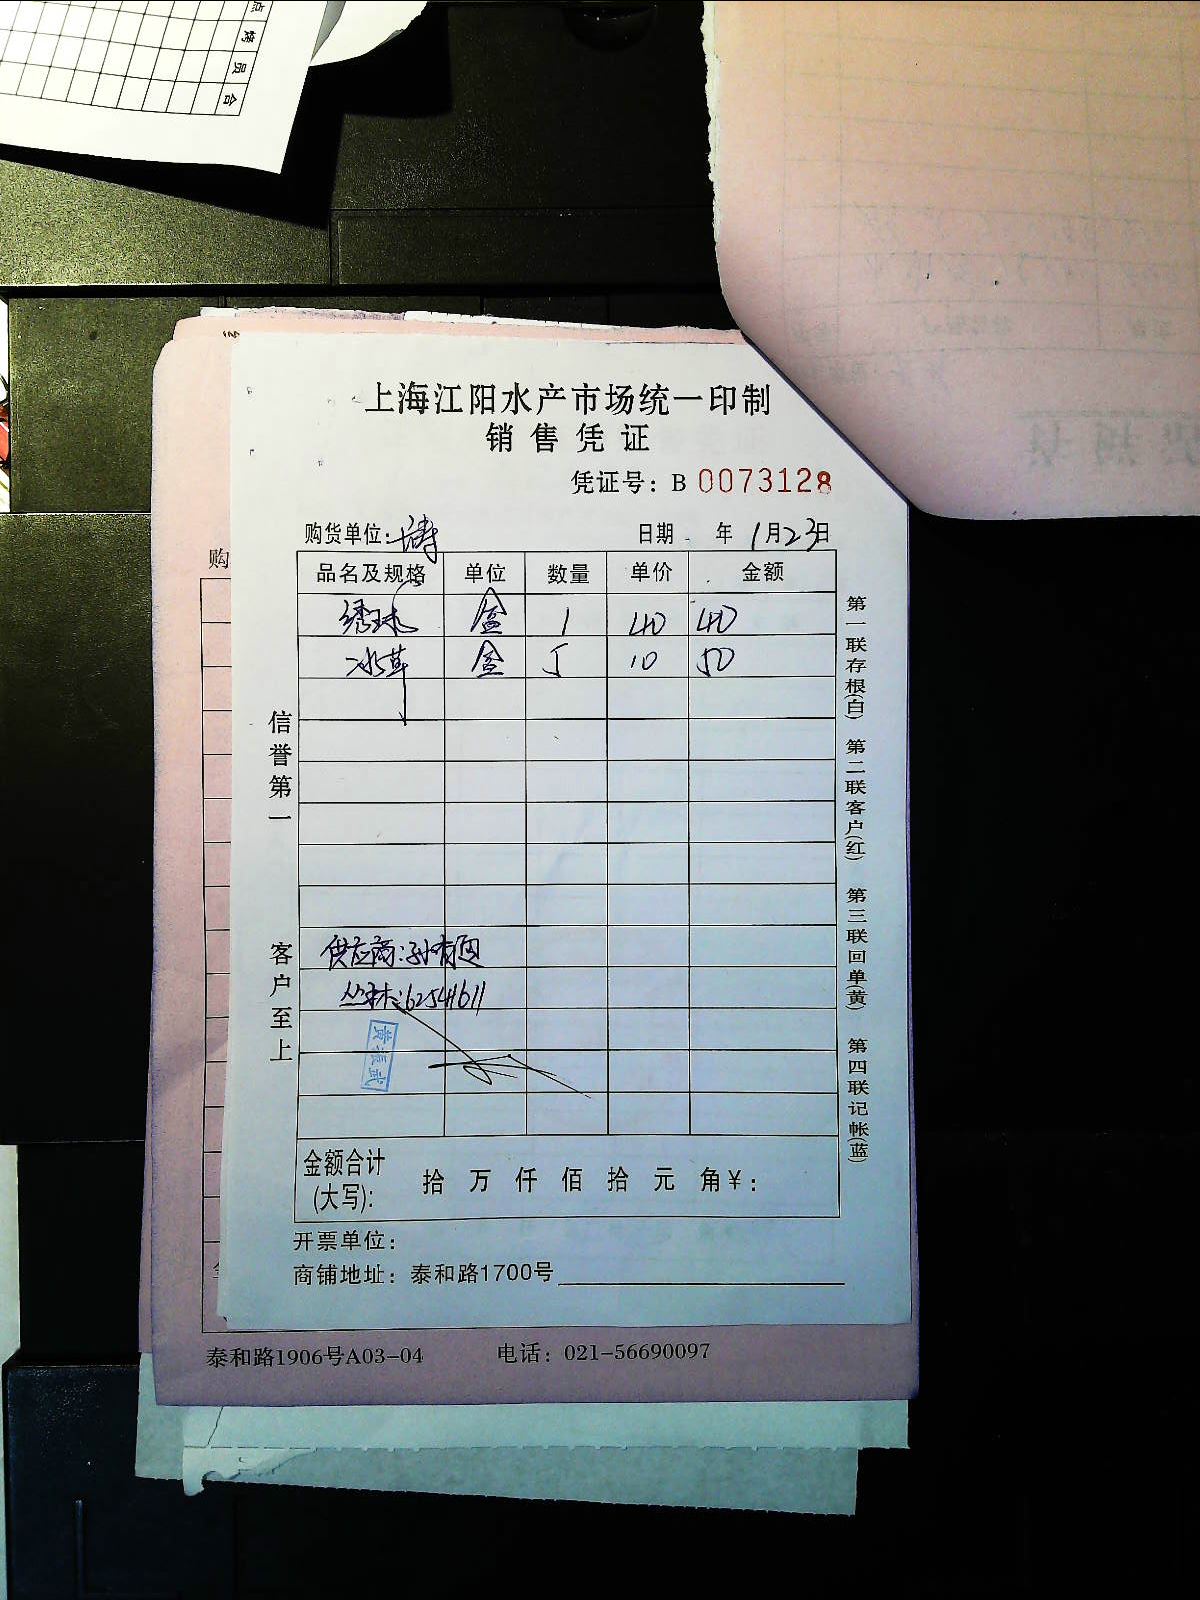 点
烤
员
合
上海江阳水产市场统一印制
销售凭证
凭证号：B 0073128
购货单位： 日期 年 1月23日
购
品名及规格 单位 数量 单价 金额
绣球 盒 1 40 40
冰草 盒 5 10 50
信誉第一
客户至上
供应商：孙有
丛林：62541611
黄振武
第一联存根(白) 第二联客户(红) 第三联回单(黄) 第四联记帐(蓝)
金额合计
(大写): 拾 万 仟 佰 拾 元 角¥：
开票单位：
商铺地址：泰和路1700号
泰和路1906号A03-04 电话：021-56690097